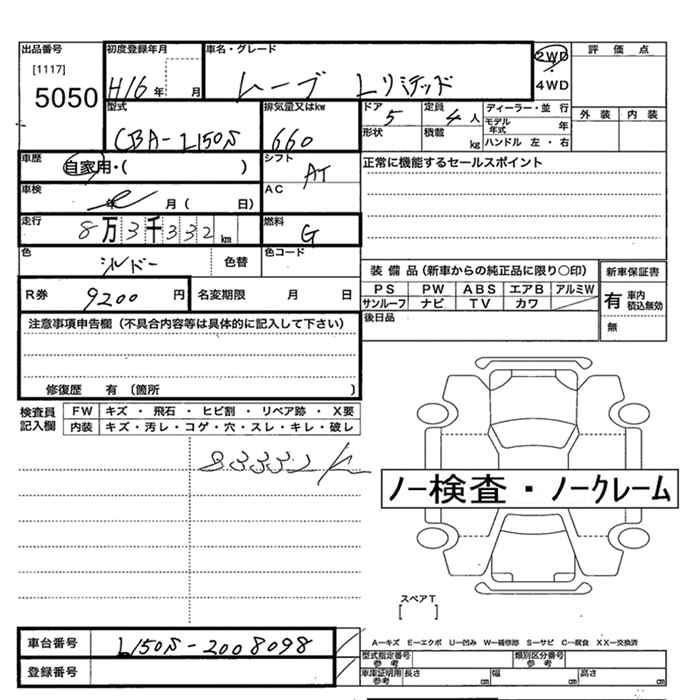 出品番号 初度登録年月 車名・グレード 2WD 評価点
[1117] 5050 H16年 月 ムーブ Lリミテッド 4WD
型式 排気量又はkw ドア 5 定員 4人 ディーラー・並行 外装 内装
CBA-L150S 660 形状 積載 kg モデル年式 年
ハンドル 左・右
車歴 自家用・( ) シフト AT 正常に機能するセールスポイント
車検 年 月( 日) AC
走行 8万3千332km 燃料 G
色 シルバー 色替 色コード
装備品(新車からの純正品に限り○印) 新車保証書
R券 9200円 名変期限 月 日 PS PW ABS エアB アルミW 有 車内積込無効
サンルーフ ナビ TV カワ 無
注意事項申告欄(不具合内容等は具体的に記入して下さい) 後日品
修復歴 有 〔箇所 〕
検査員記入欄 FW キズ・飛石・ヒビ割・リペア跡・X要
内装 キズ・汚レ・コゲ・穴・スレ・キレ・破レ
83332
ノー検査・ノークレーム
スペアT
[ ]
車台番号 L150S-2008098 A-キズ E-エクボ U-凹ミ W-補修跡 S-サビ C-腐食 XX-交換済
登録番号 型式指定番号 参考 類別区分番号 参考
車庫証明用 参考 長さ cm 幅 cm 高さ cm